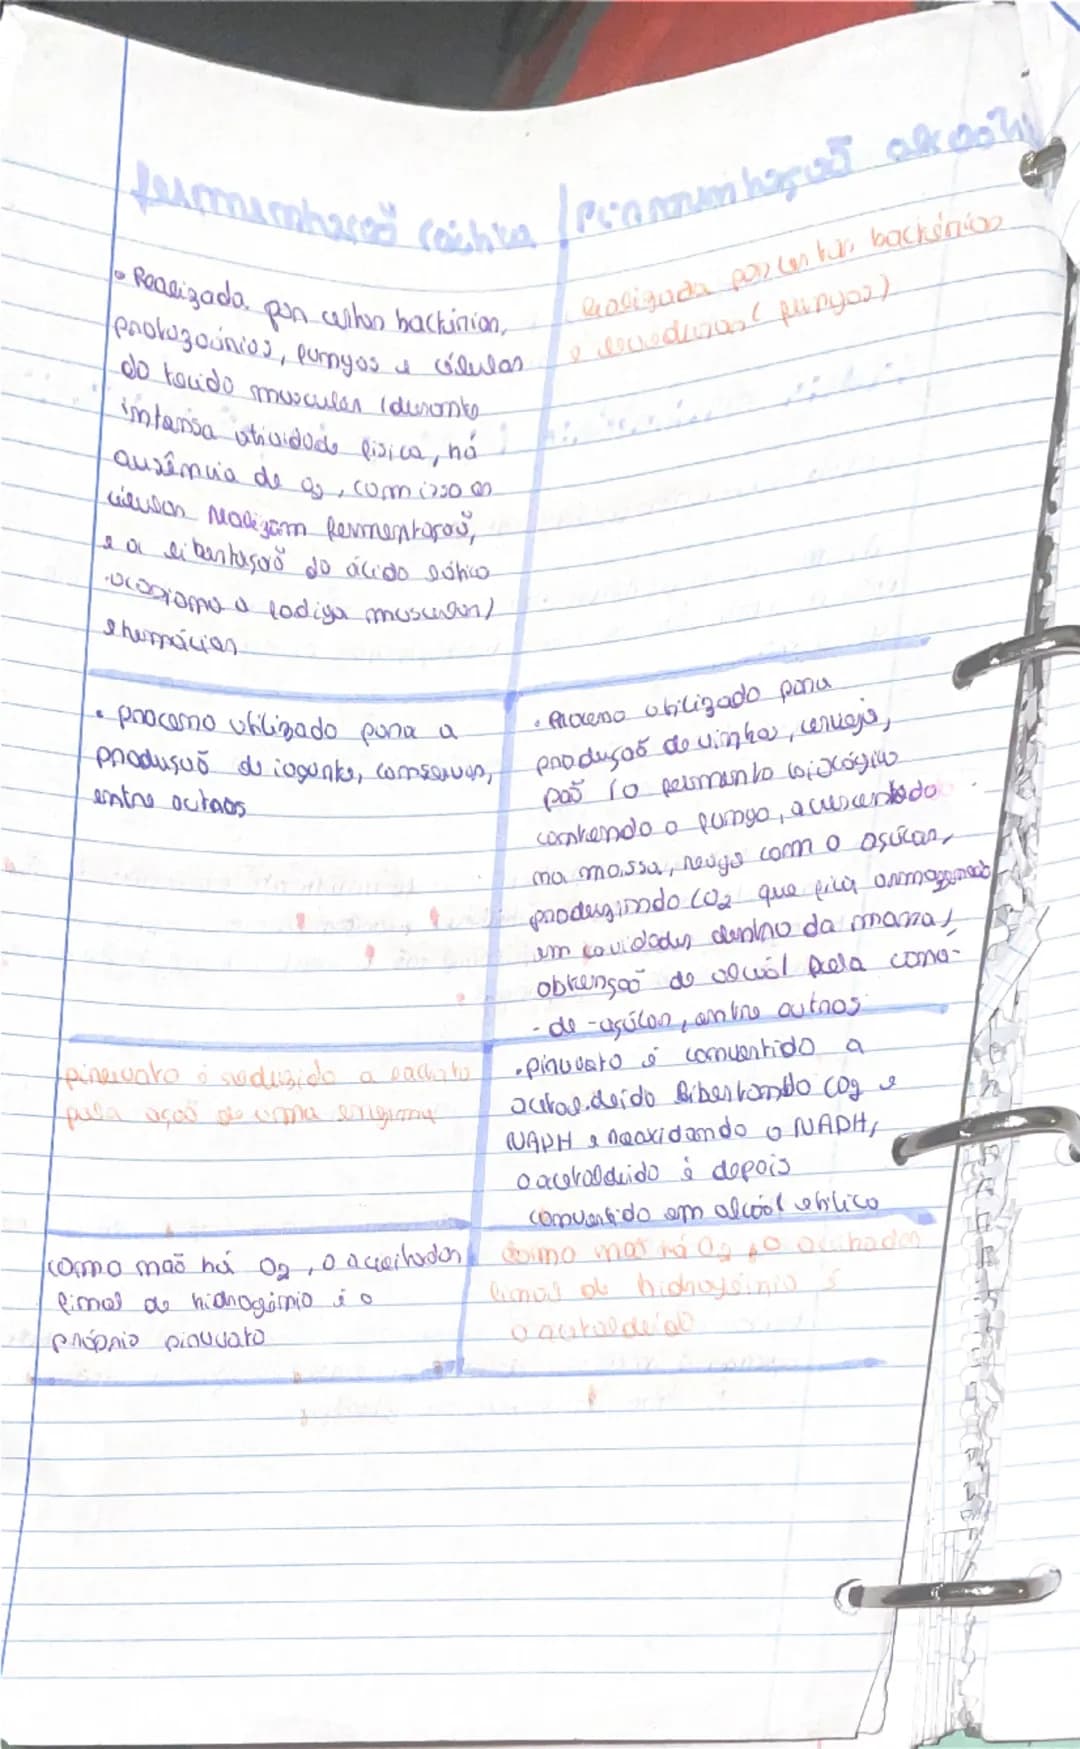 fermentação láctica
• Realizada por certas bactérias,
protozoários, fungos e células
do tecido muscular (durante
intensa atividade física, há
ausência de O2, com isso as
células realizam fermentação,
e a libertação do ácido lático
ocasiona a fadiga muscular)
e hemácias
• processo utilizado para a
produção de iogurte, conservas,
entre outros
piruvato é reduzido a lactato
pela ação de uma enzima
como não há O2, o aceitador
final de hidrogénio é o
próprio piruvato
fermentação alcoóli
Realizada por certas bactérias
e leveduras (fungos)
• Processo utilizado para
produção de vinho, cerveja,
pão (o fermento biológico
contendo o fungo, acrescentado
na massa, reage com o açúcar,
produzindo CO2 que fica armazenado
em cavidades dentro da massa),
obtenção de álcool pela cana-
-de-açúcar, entre outros
• piruvato é convertido a
acetaldeído libertando CO2 e
NADH e reoxidando o NADH,
o acetaldeído é depois
convertido em alcoól etílico
Como não há O2, o aceitador
final de hidrogénio é
o acetaldeído